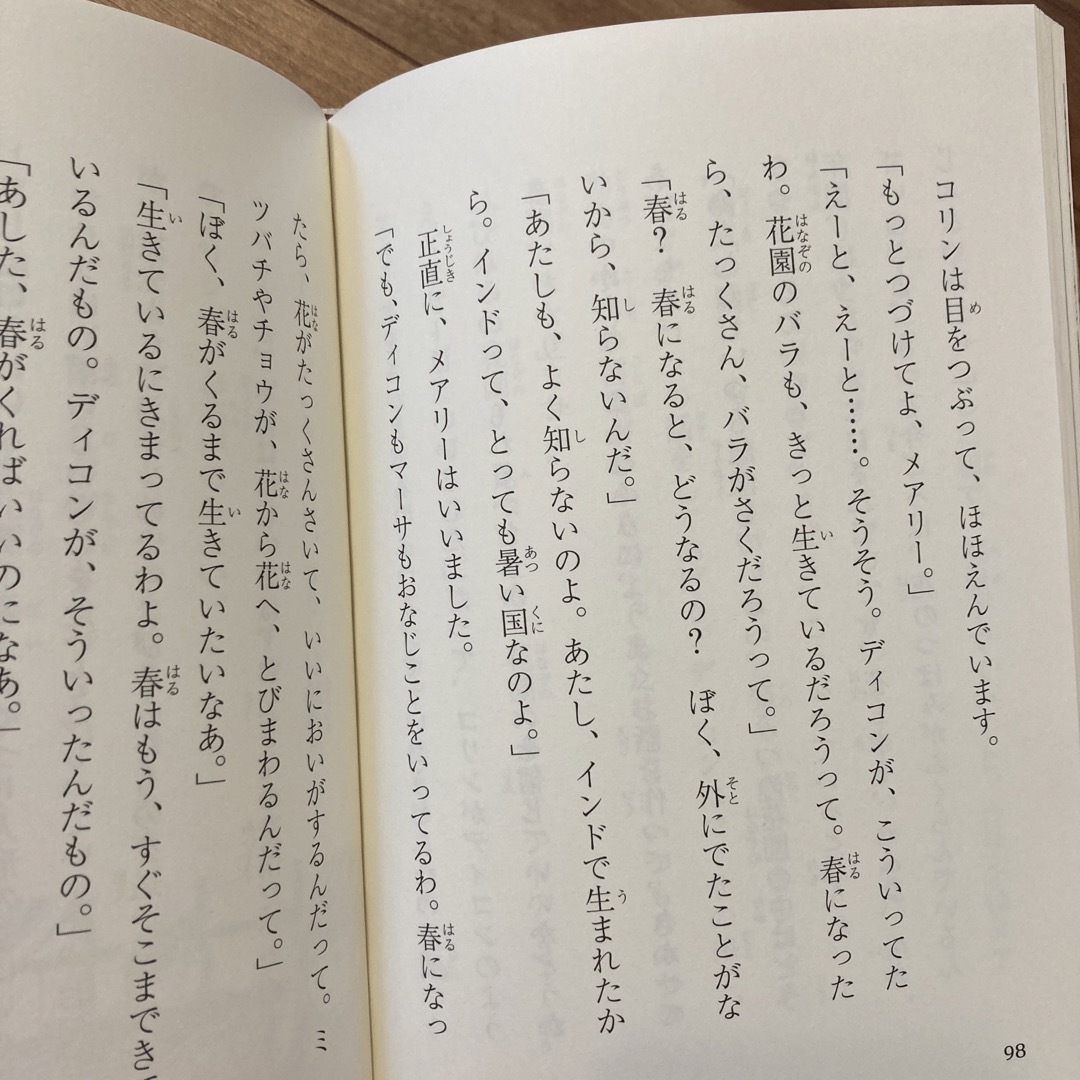 コリンは目をつぶって、ほほえんでいます。
「もっとつづけてよ、メアリー。」
「えーと、えーと……。そうそう。ディコンが、こういってた
わ。花園のバラも、きっと生きているだろうって。春になった
ら、たっくさん、バラがさくだろうって。」
「春? 春になると、どうなるの? ぼく、外にでたことがな
いから、知らないんだ。」
「あたしも、よく知らないのよ。あたし、インドで生まれたか
ら。インドって、とっても暑い国なのよ。」
正直に、メアリーはいいました。
「でも、ディコンもマーサもおなじことをいってるわ。春になっ
たら、花がたっくさんさいて、いいにおいがするんだって。ミ
ツバチやチョウが、花から花へ、とびまわるんだって。」
「ぼく、春がくるまで生きていたいなあ。」
「生きているにきまってるわよ。春はもう、すぐそこまできて
いるんだもの。ディコンが、そういったんだもの。」
「あした、春がくればいいのになあ。」
98